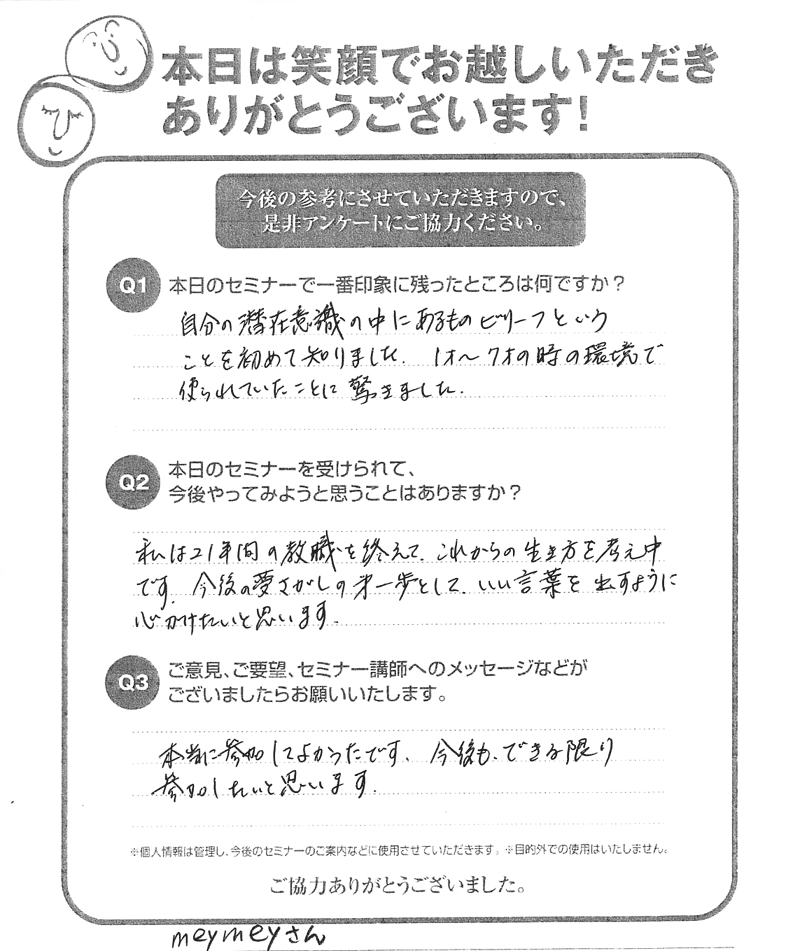 本日は笑顔でお越しいただき
ありがとうございます!
今後の参考にさせていただきますので、
是非アンケートにご協力ください。
Q1 本日のセミナーで一番印象に残ったところは何ですか?
自分の潜在意識の中にあるものビリーフという
ことを初めて知りました. 1才〜7才の時の環境で
使られていたことに驚きました.
Q2 本日のセミナーを受けられて、
今後やってみようと思うことはありますか?
私は21年間の教職を終えて、これからの生き方を考え中
です. 今後の夢さがしの第一歩として、いい言葉を出すように
心がけたいと思います.
Q3 ご意見、ご要望、セミナー講師へのメッセージなどが
ございましたらお願いいたします。
本当に参加してよかったです. 今後も、できる限り
参加したいと思います.
※個人情報は管理し、今後のセミナーのご案内などに使用させていただきます。※目的外での使用はいたしません。
ご協力ありがとうございました。
meymeyさん